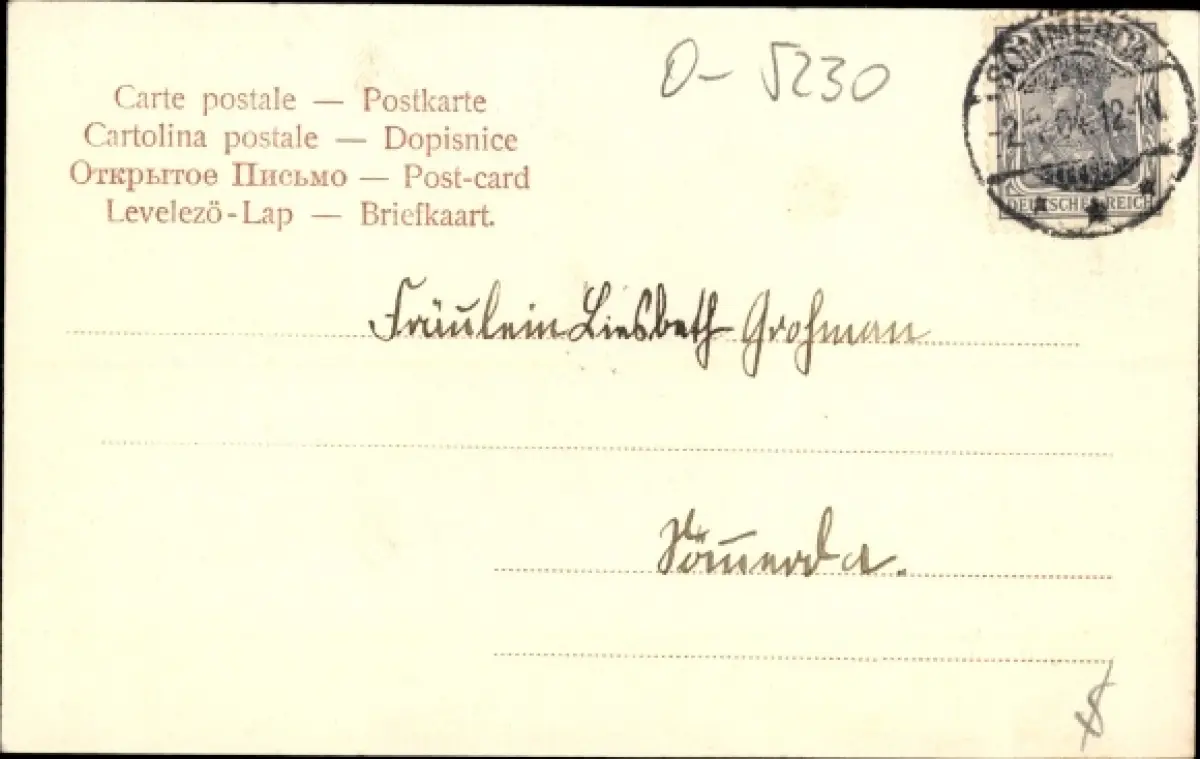 Carte postale — Postkarte
Cartolina postale — Dopisnice
Открытое Письмо — Post-card
Levelező-Lap — Briefkaart.
O- 5230
SÖMMERDA
DEUTSCHES REICH
Fräulein Liesbeth Grohman
Söm̄erda.